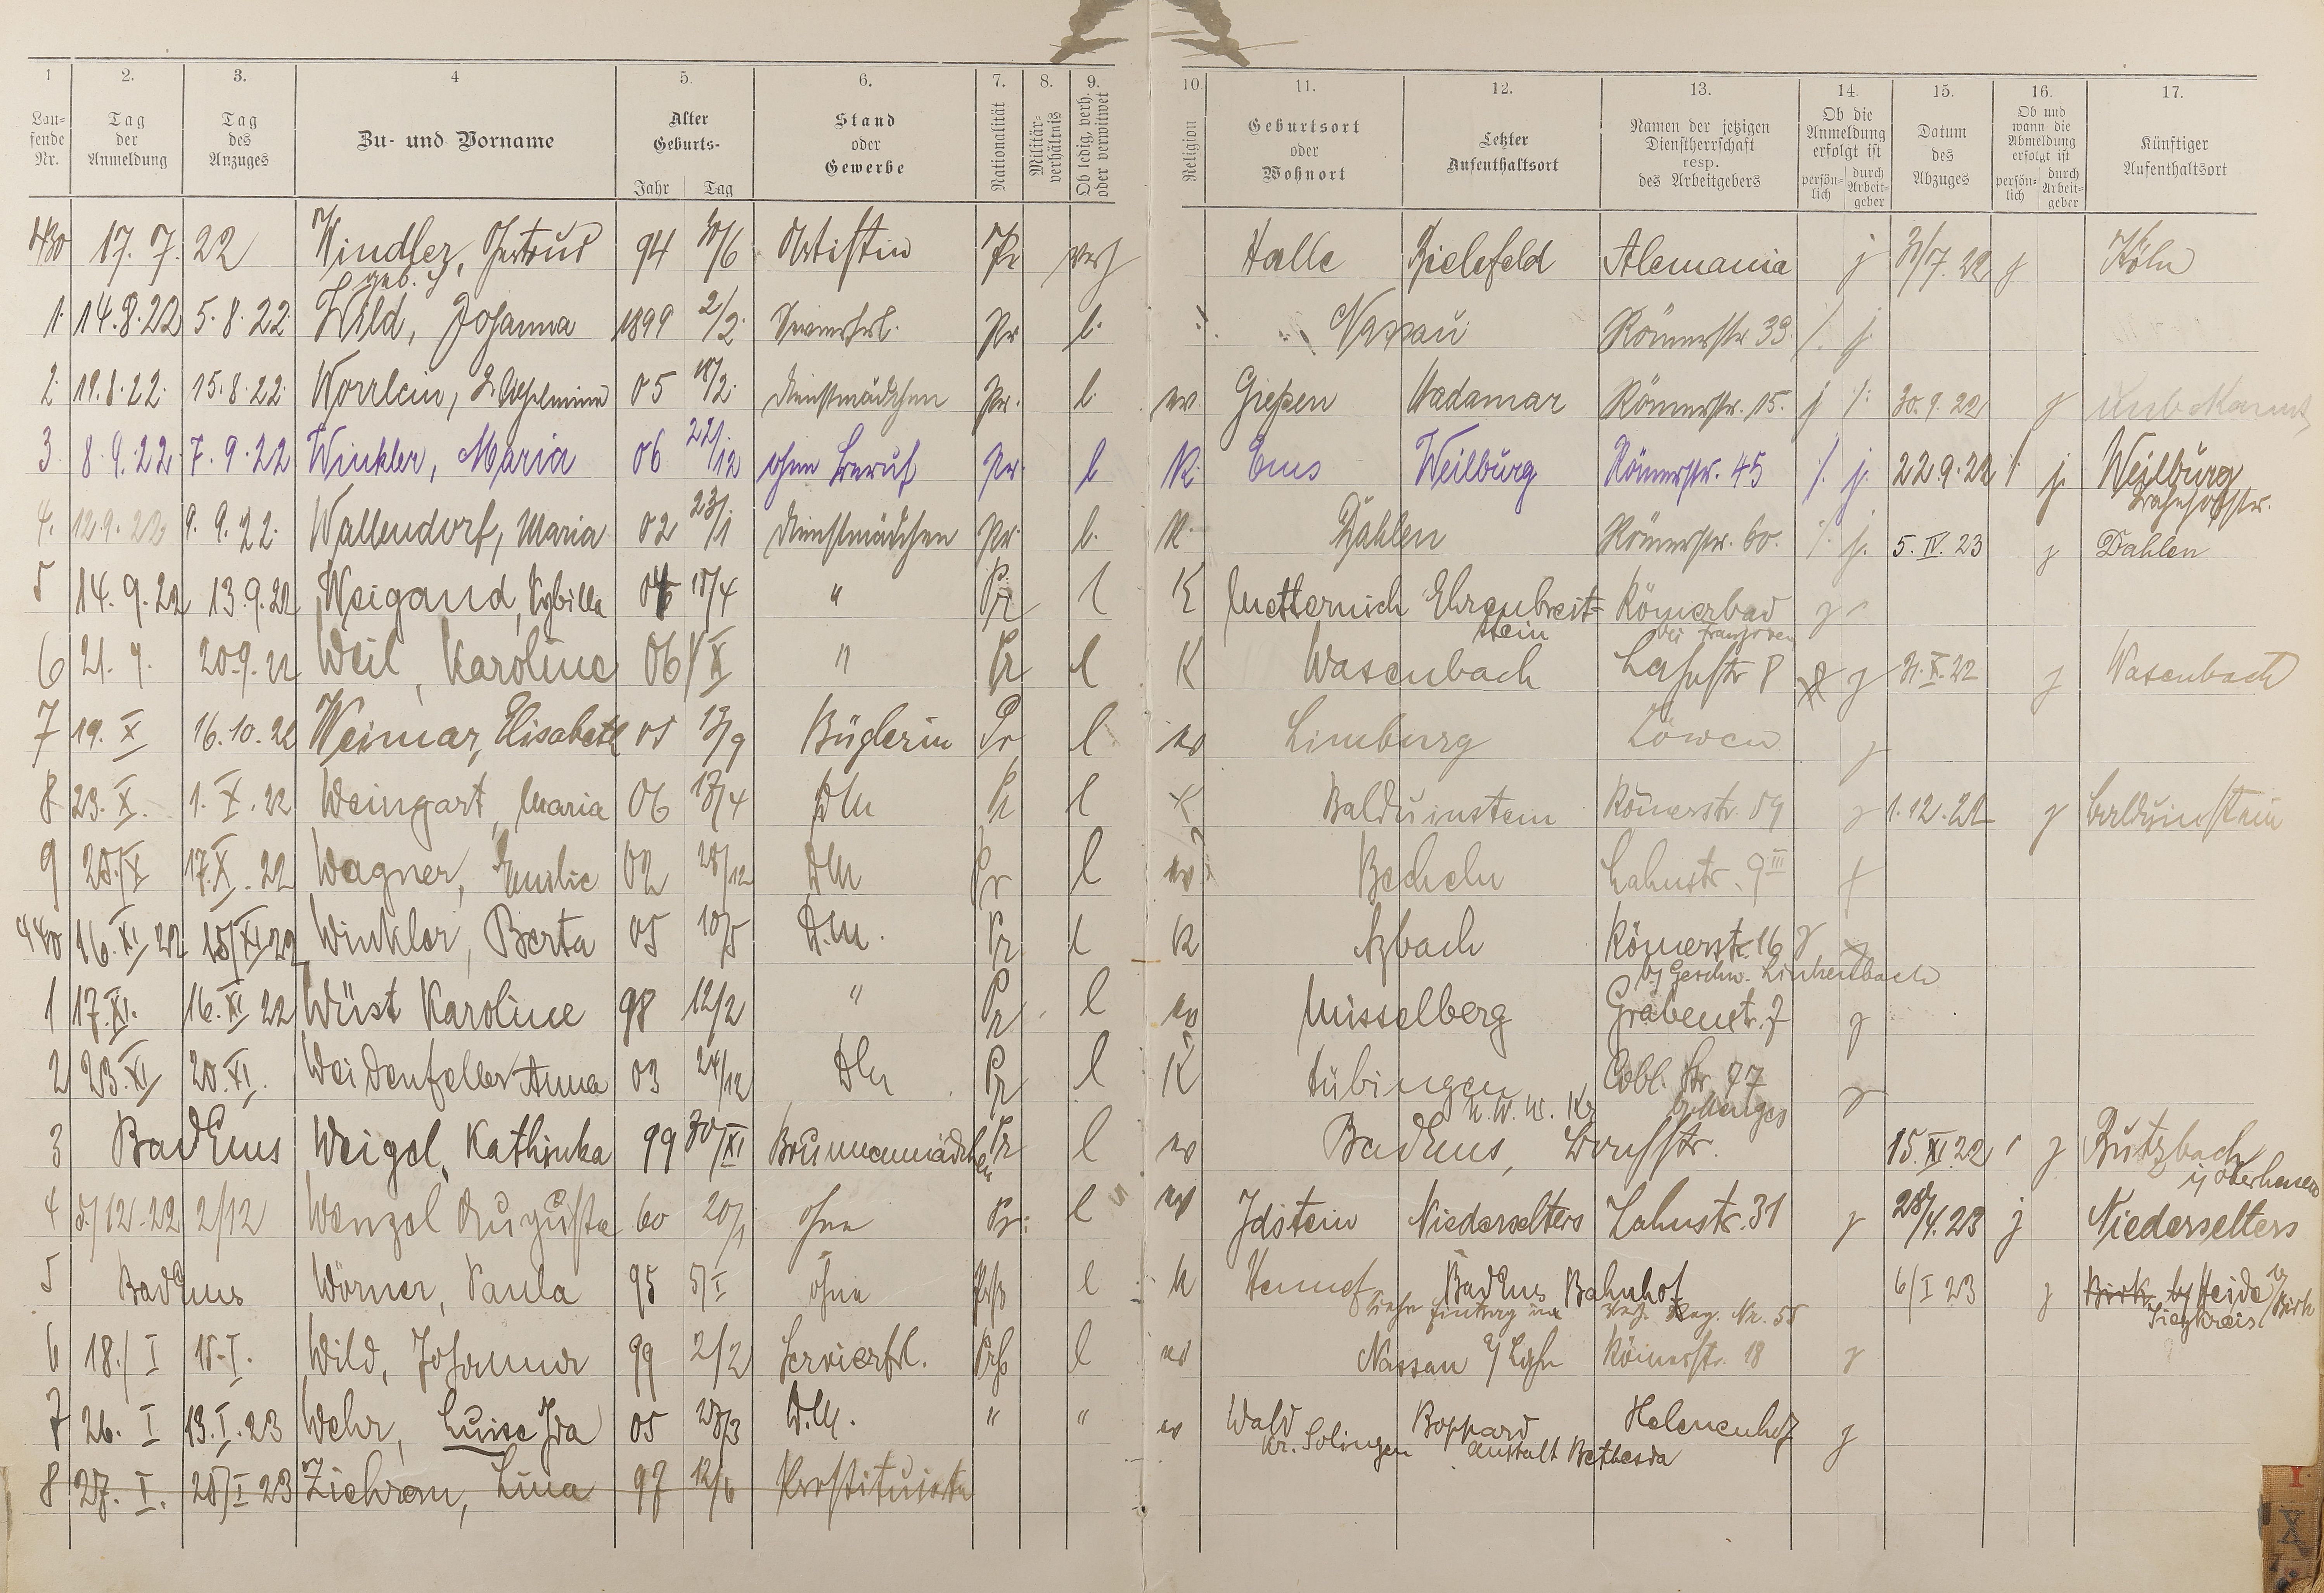 1 2. 3. 4 5. 6. 7. 8. 9. 10 11. 12. 13. 14. 15. 16. 17.
Lau-
fende
Nr.
Tag
der
Anmeldung
Tag
des
Anzuges
Zu- und Vorname
Alter
Geburts-
Jahr Tag
Stand
oder
Gewerbe
Nationalität
Militär-
verhältnis
Ob ledig, verh.
oder verwitwet
Religion
Geburtsort
oder
Wohnort
Letzter
Aufenthaltsort
Namen der jetzigen
Dienstherrschaft
resp.
des Arbeitgebers
Ob die
Anmeldung
erfolgt ist
persön-
lich
durch
Arbeit-
geber
Datum
des
Abzuges
Ob und
wann die
Abmeldung
erfolgt ist
persön-
lich
durch
Arbeit-
geber
Künftiger
Aufenthaltsort
430 17. 7. 22 Windler, Gertrud 94 Artistin Pr verh Halle Bielefeld Alemania j 31/7. 22 j Köln
geb.
1. 14.8.22 5.8.22. Wild, Johanna 1899 2/2. Servierfrl. Pr l. Nassau Römerstr. 39. /. j.
2. 19.8.22. 15.8.22. Worrlein, Wilhelmine 05 18/2. Dienstmädchen Pr. l. ev. Gießen Hadamar Römerstr. 15. j /. 30.9.22 j Unbekannt
3 8.9.22. 7.9.22 Winkler, Maria 06 22/12 ohne Beruf Pr. l K. Ems Weilburg Römerstr. 45 /. j. 22.9.22 /. j. Weilburg
Bahnhofstr.
4. 12.9.22 9.9.22. Wallendorf, Maria 02 23/1 Dienstmädchen Pr. l. K. Dahlen Römerstr. 60. /. j. 5. IV. 23 j Dahlen
5 14.9.22 13.9.22 Weigand, Sybilla 04 15/4 " Pr l K Metternich Ehrenbreit- Römerbad j
stein bei Franzosen
6 21. 9. 20.9.22 Weil, Karoline 06 1/X " Pr l K Wasenbach Lahnstr 8 j 31.X.22 j Wasenbach
7 19. X 16.10.22 Weimar, Elisabeth 05 13/9 Büglerin Pr l ev Limburg Löwen j
8 23. X. 1. X. 22 Weingart, Maria 06 13/4 DM Pr l K Balduinstein Römerstr. 59 j 1.12.22 j Balduinstein
9 25./X 17.X. 22 Wagner, Emilie 02 28/12 DM Pr l ev Becheln Lahnstr. 9 III j
440 16. XI 22 15/XI 22 Winkler, Berta 05 10/5 D.M. Pr l K Azbach Römerstr. 16 j
b/ Geschw. Linkenbach
1 17.XI. 16. XI 22 Wüst Karoline 98 12/2 " Pr l ev Misselberg Grabenstr. 7 j
2 23. XI 20. XI. Weidenfeller Anna 03 24/12 DM Pr l K Tübingen Cobl. Str. 77 j
3 Bad Ems Weigel, Kathinka 99 30/XI Brunnenmädchen Pr l ev Bad Ems, 15. XI. 22 j Butzbach
i/ Oberhessen
4 5/12.22 2/12 Wenzel Auguste 60 20/1 ohne Pr. l ev Idstein Niederselters Lahnstr. 31 j 28/4.23 j Niederselters
5 Bad Ems Wörner, Paula 95 5/I ohne Prß l K Hennef Bad Ems Bahnhof 6/I 23 j Birk by Heide
siehe Eintrag im Reg. Nr. 55 Siegkreis
6 18./I 15.I. Wild, Johanna 99 2/2 Servierfrl. Prß l ev Nassau a/ Lahn Römerstr. 18 j
7 26. I 13.I.23 Wehr, Luise Ida 05 28/3 D.M. " " ev Wald Boppard Helenenhof j
Kr. Solingen Anstalt Bethesda
8 27. I. 25/I 23 Lina 97 12/6 Prostituierte